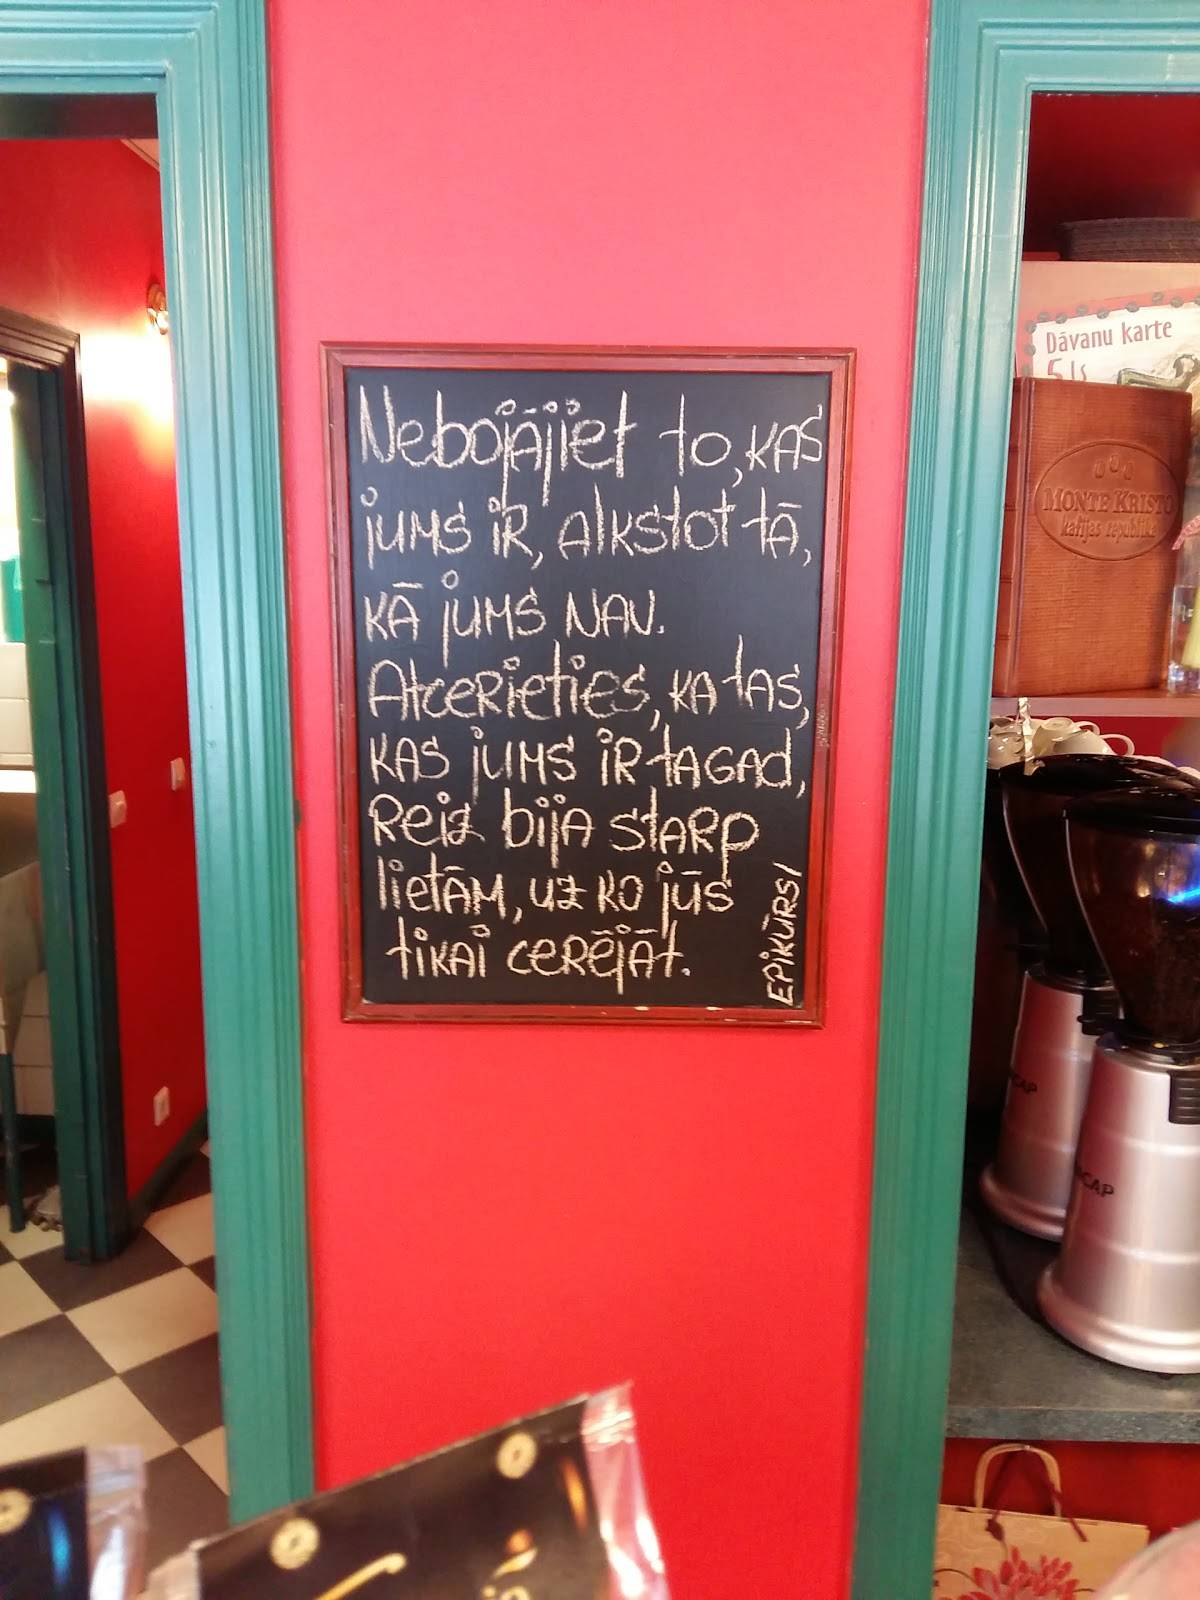 Nebojājiet to, kas
jums ir, alkstot tā,
kā jums nav.
Atcerieties, ka tas,
kas jums ir tagad,
Reiz bija starp
lietām, uz ko jūs
tikai cerējāt.
EPIKŪRS/
Dāvanu karte
5 Ls
MONTE KRISTO
kafijas republika
CAP
CAP